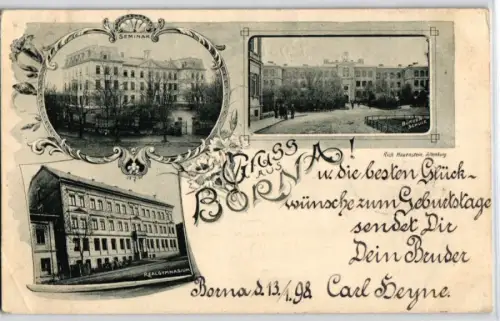 SEMINAR
Rich. Hauenstein, Altenburg
Gruss
AUS
BORNA!
u. die besten Glück-
wünsche zum Geburtstage
sendet Dir
Dein Bruder
Carl Heyne.
REALGYMNASIUM
Borna d. 13/1. 98